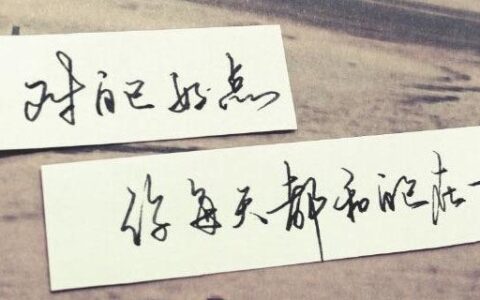 对自己好点
你每天都和自己在一